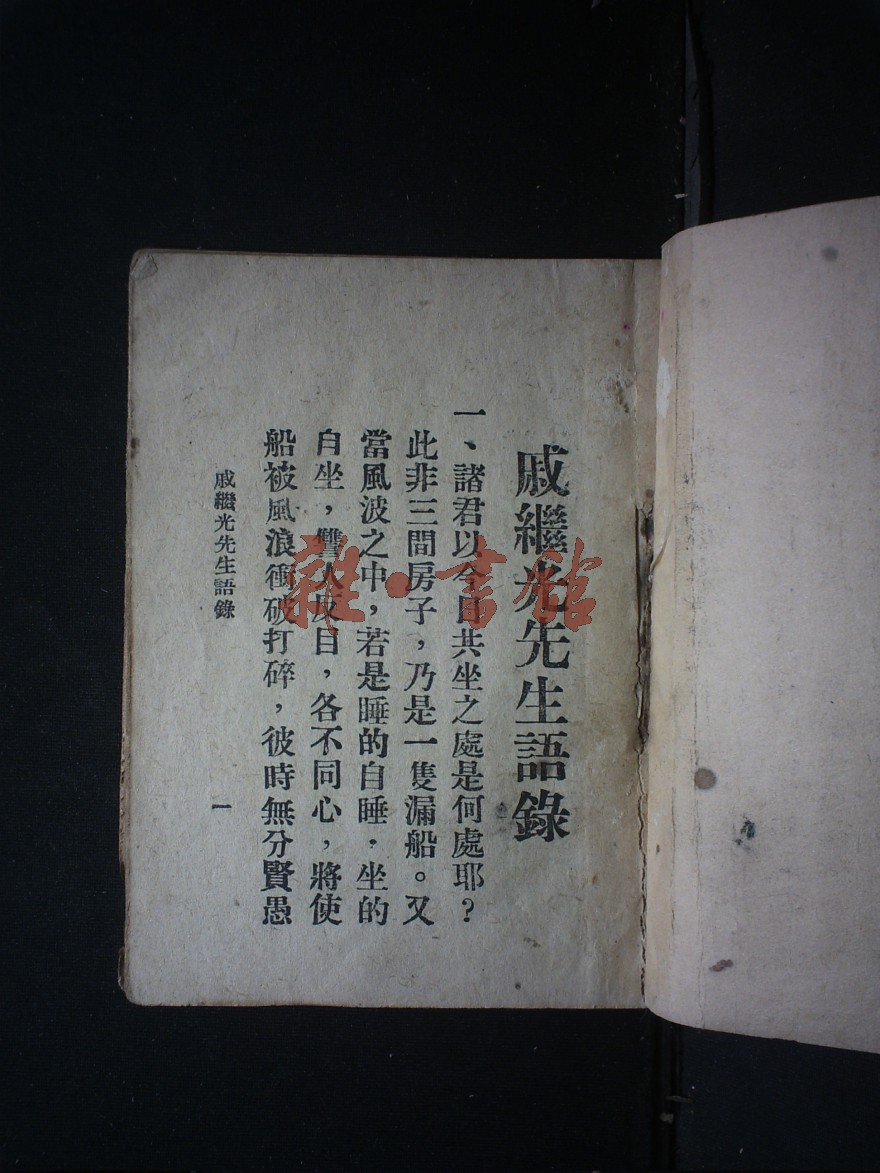 戚繼光先生語錄
一、諸君以今日共坐之處是何處耶？
此非三間房子，乃是一隻漏船。又
當風波之中，若是睡的自睡，坐的
自坐，讐人反目，各不同心，將使
船被風浪衝破打碎，彼時無分賢愚
戚繼光先生語錄
一
雜·書館